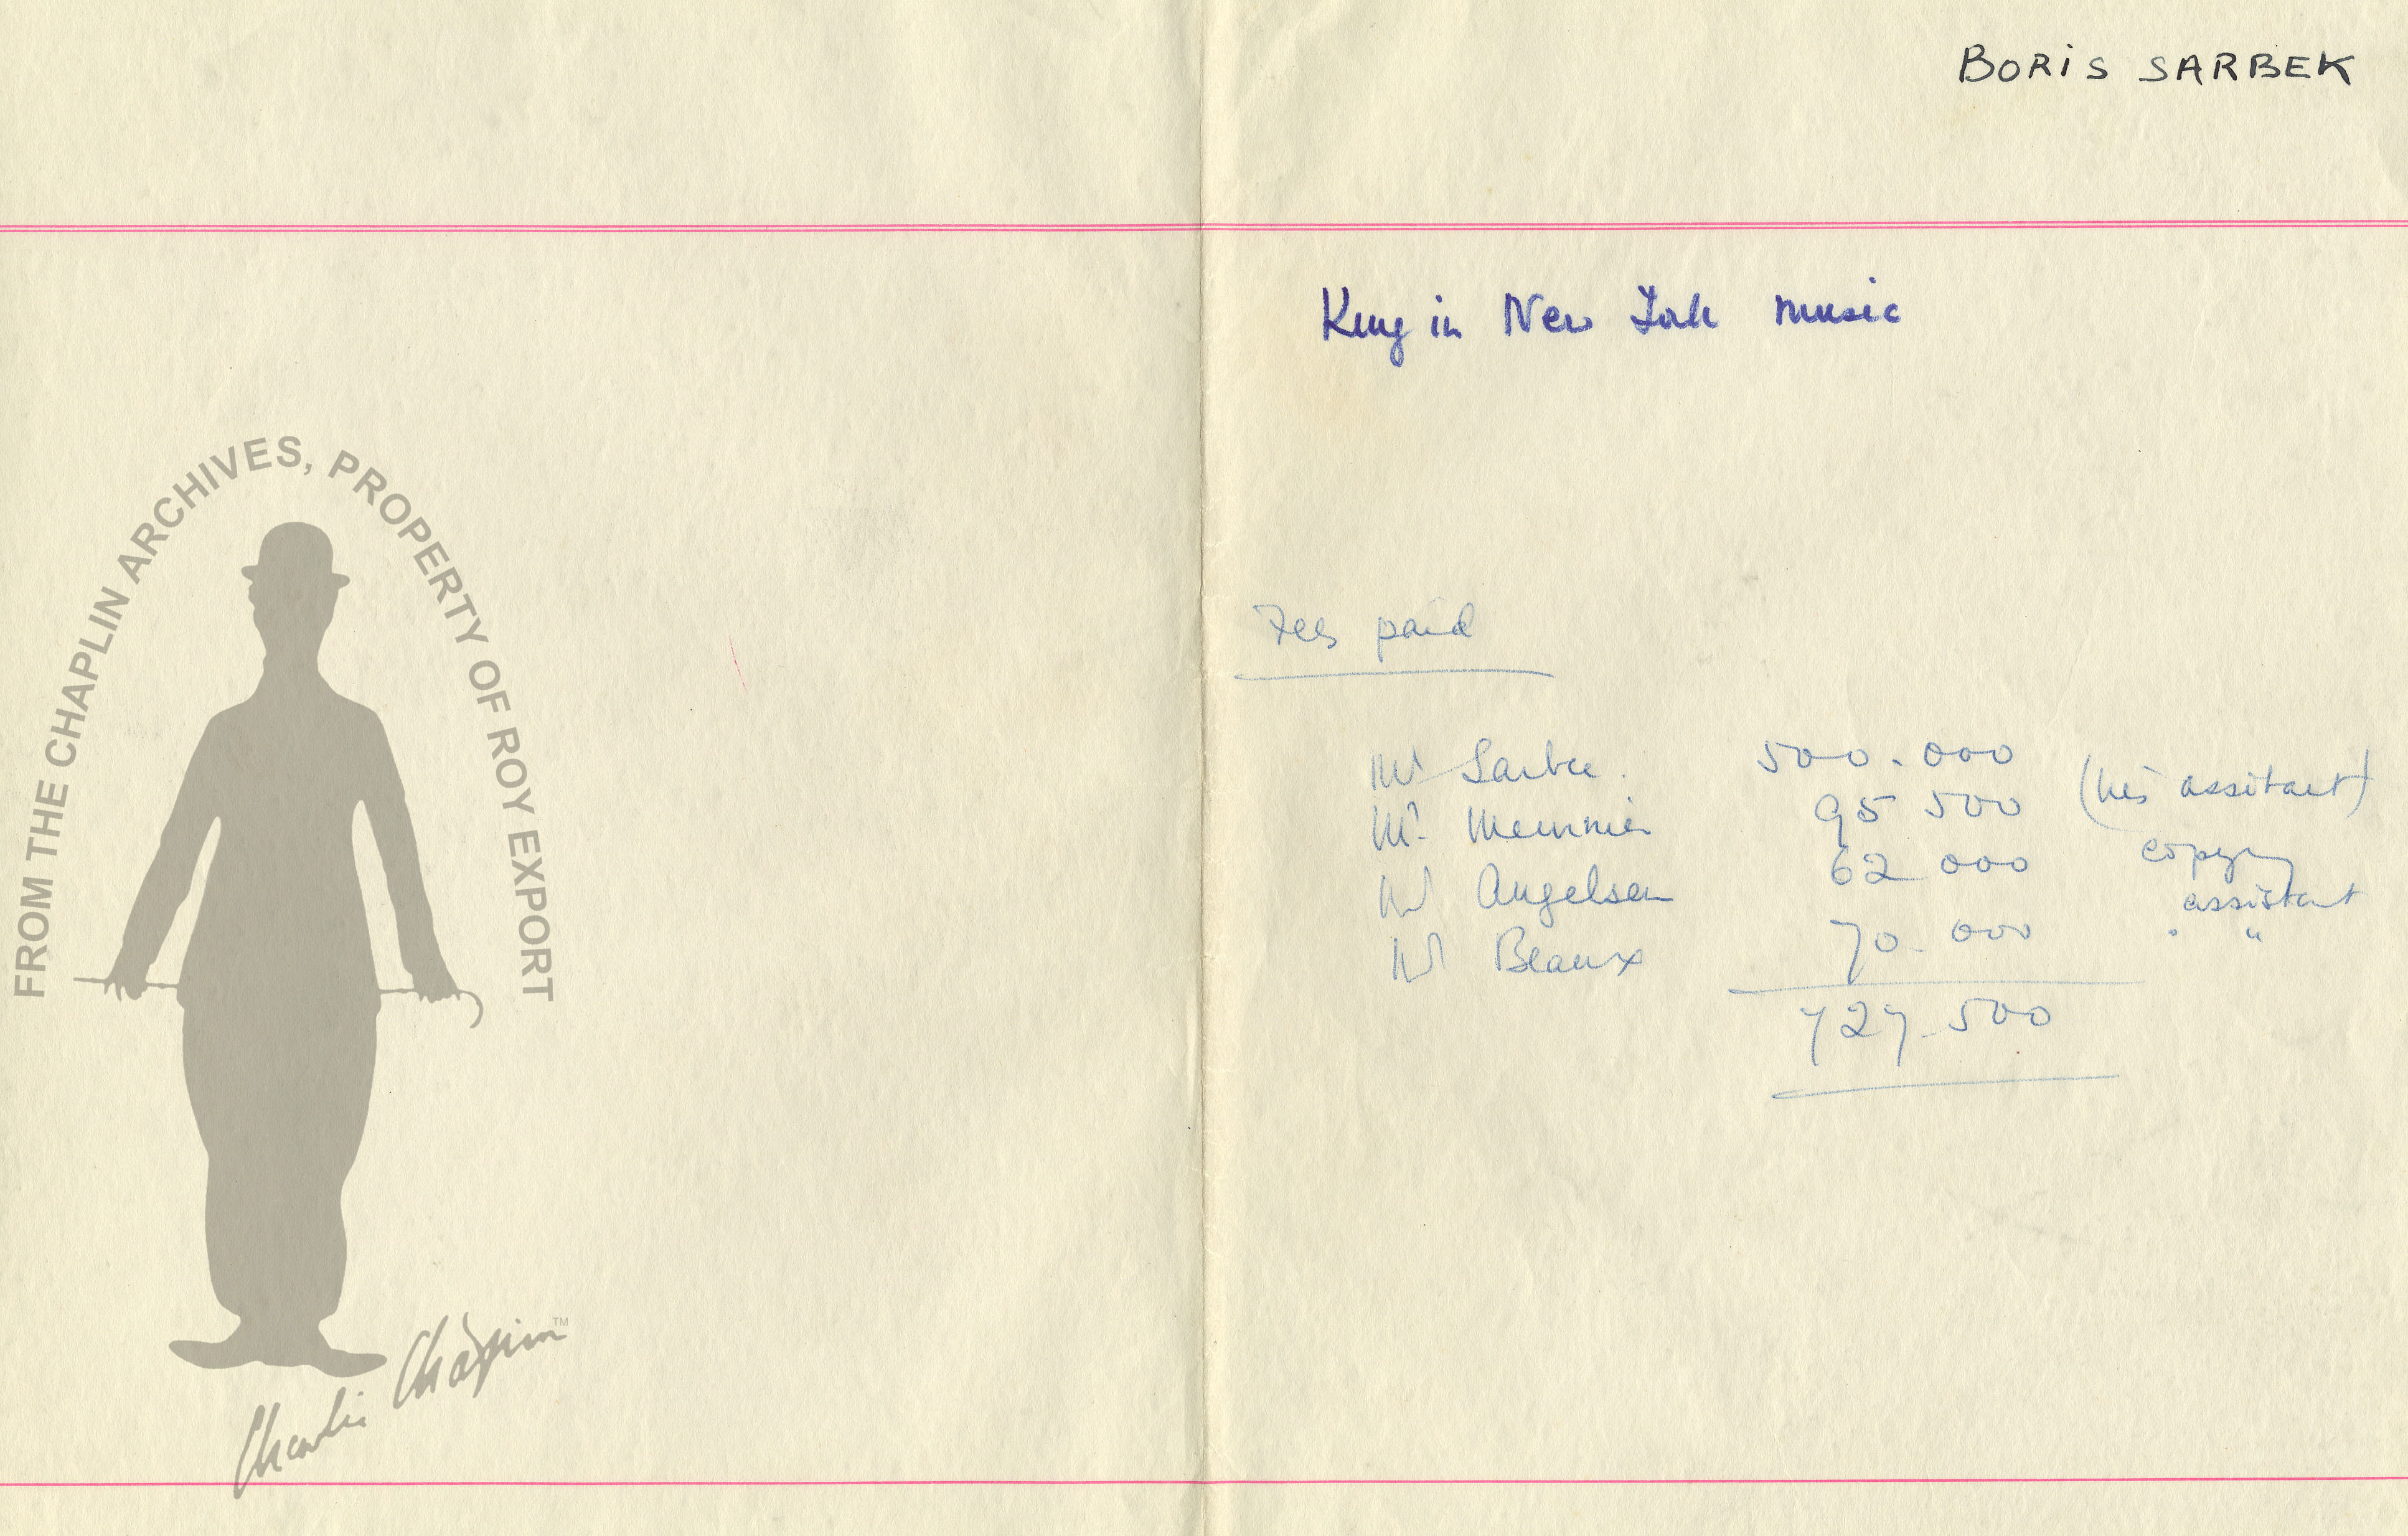 BORiS SARBEK
King in New York music
FROM THE CHAPLIN ARCHIVES, PROPERTY OF ROY EXPORT
Fees paid
Mr Sarbec. 500.000
Mr. Meunnier 95 500 (his assitant)
Mr Angelsen 62 000 copy assistant
Mr Beaux 70.000 " "
727.500
Charlie Chaplin™